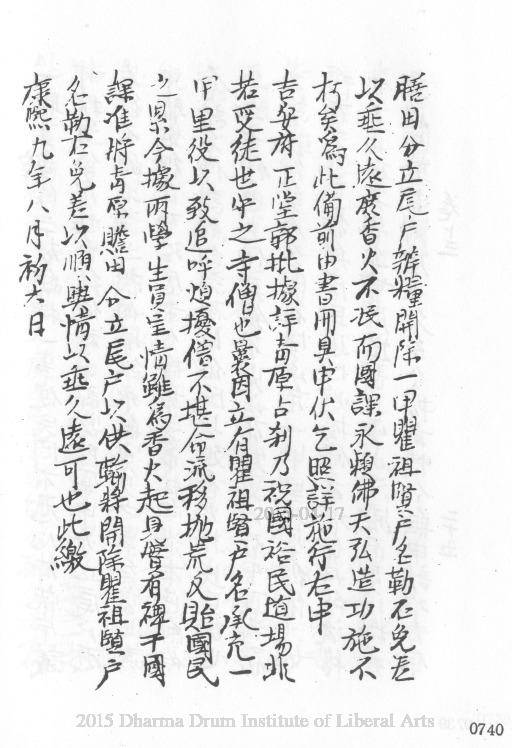 膳田分立尾戶辨糧開除一甲瞿祖賢戶名勒石免差
以垂久遠庶香火不泯而國課永賴佛天弘造功施不
朽矣爲此備前由書冊具申伏乞照詳施行右申
吉安府正堂郭批據詳青原占刹乃祝國裕民道塲非
若受徒世守之寺僧也曩因立有瞿祖賢戶名承充一
甲里役以致追呼煩擾僧不堪命流移抛荒又貽國民
之累今據兩學生員呈情雖爲香火起見實有碑于國
課准將青原贍田分立尾戶以供輸將開除瞿祖賢戶
名勒石免差以順輿情以垂久遠可也此繳
康熙九年八月初六日
2015 Dharma Drum Institute of Liberal Arts
0740